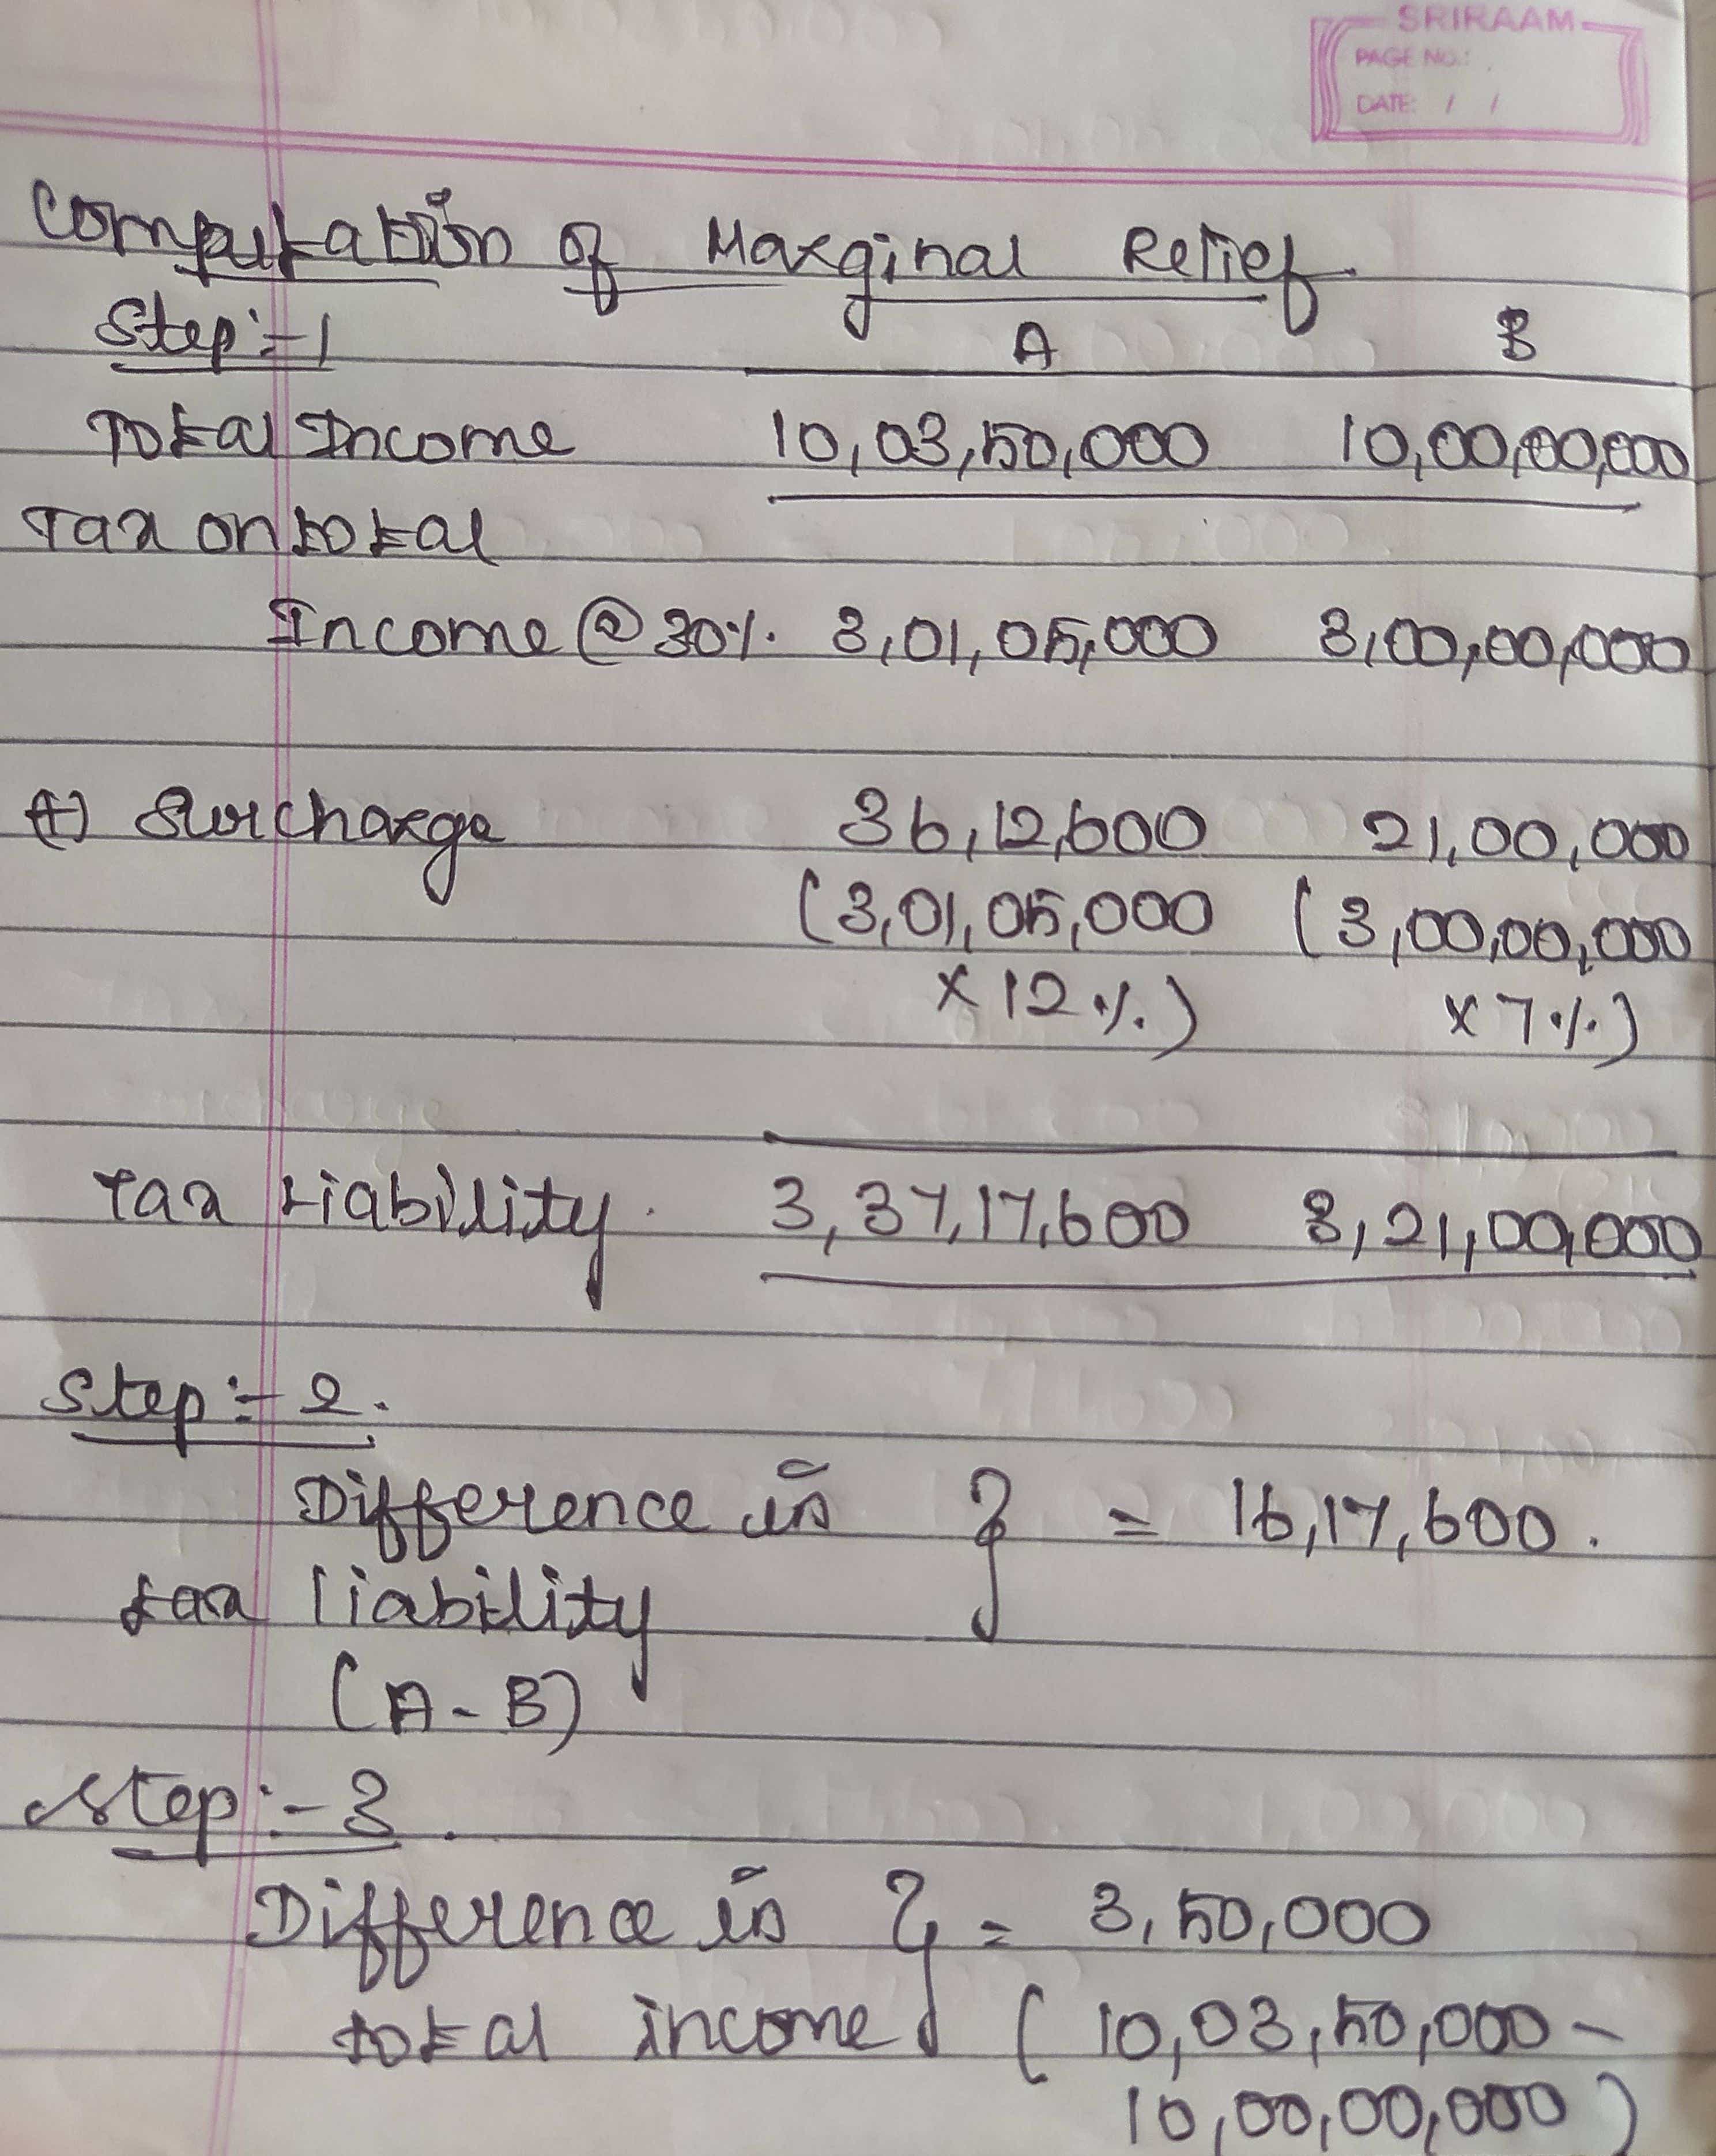 SRIRAAM
PAGE NO.:
DATE: / /
Computation of Marginal Relief
Step:-1 A B
Total Income 10,03,50,000 10,00,00,000
Tax on total
Income @ 30% 3,01,05,000 3,00,00,000
(+) Surcharge 36,12,600 21,00,000
(3,01,05,000 (3,00,00,000
x 12%) x 7%)
Tax Liability. 3,37,17,600 3,21,00,000
Step:- 2.
Difference in } = 16,17,600.
tax liability
(A-B)
Step:-3.
Difference in } = 3,50,000
total income (10,03,50,000 -
10,00,00,000)